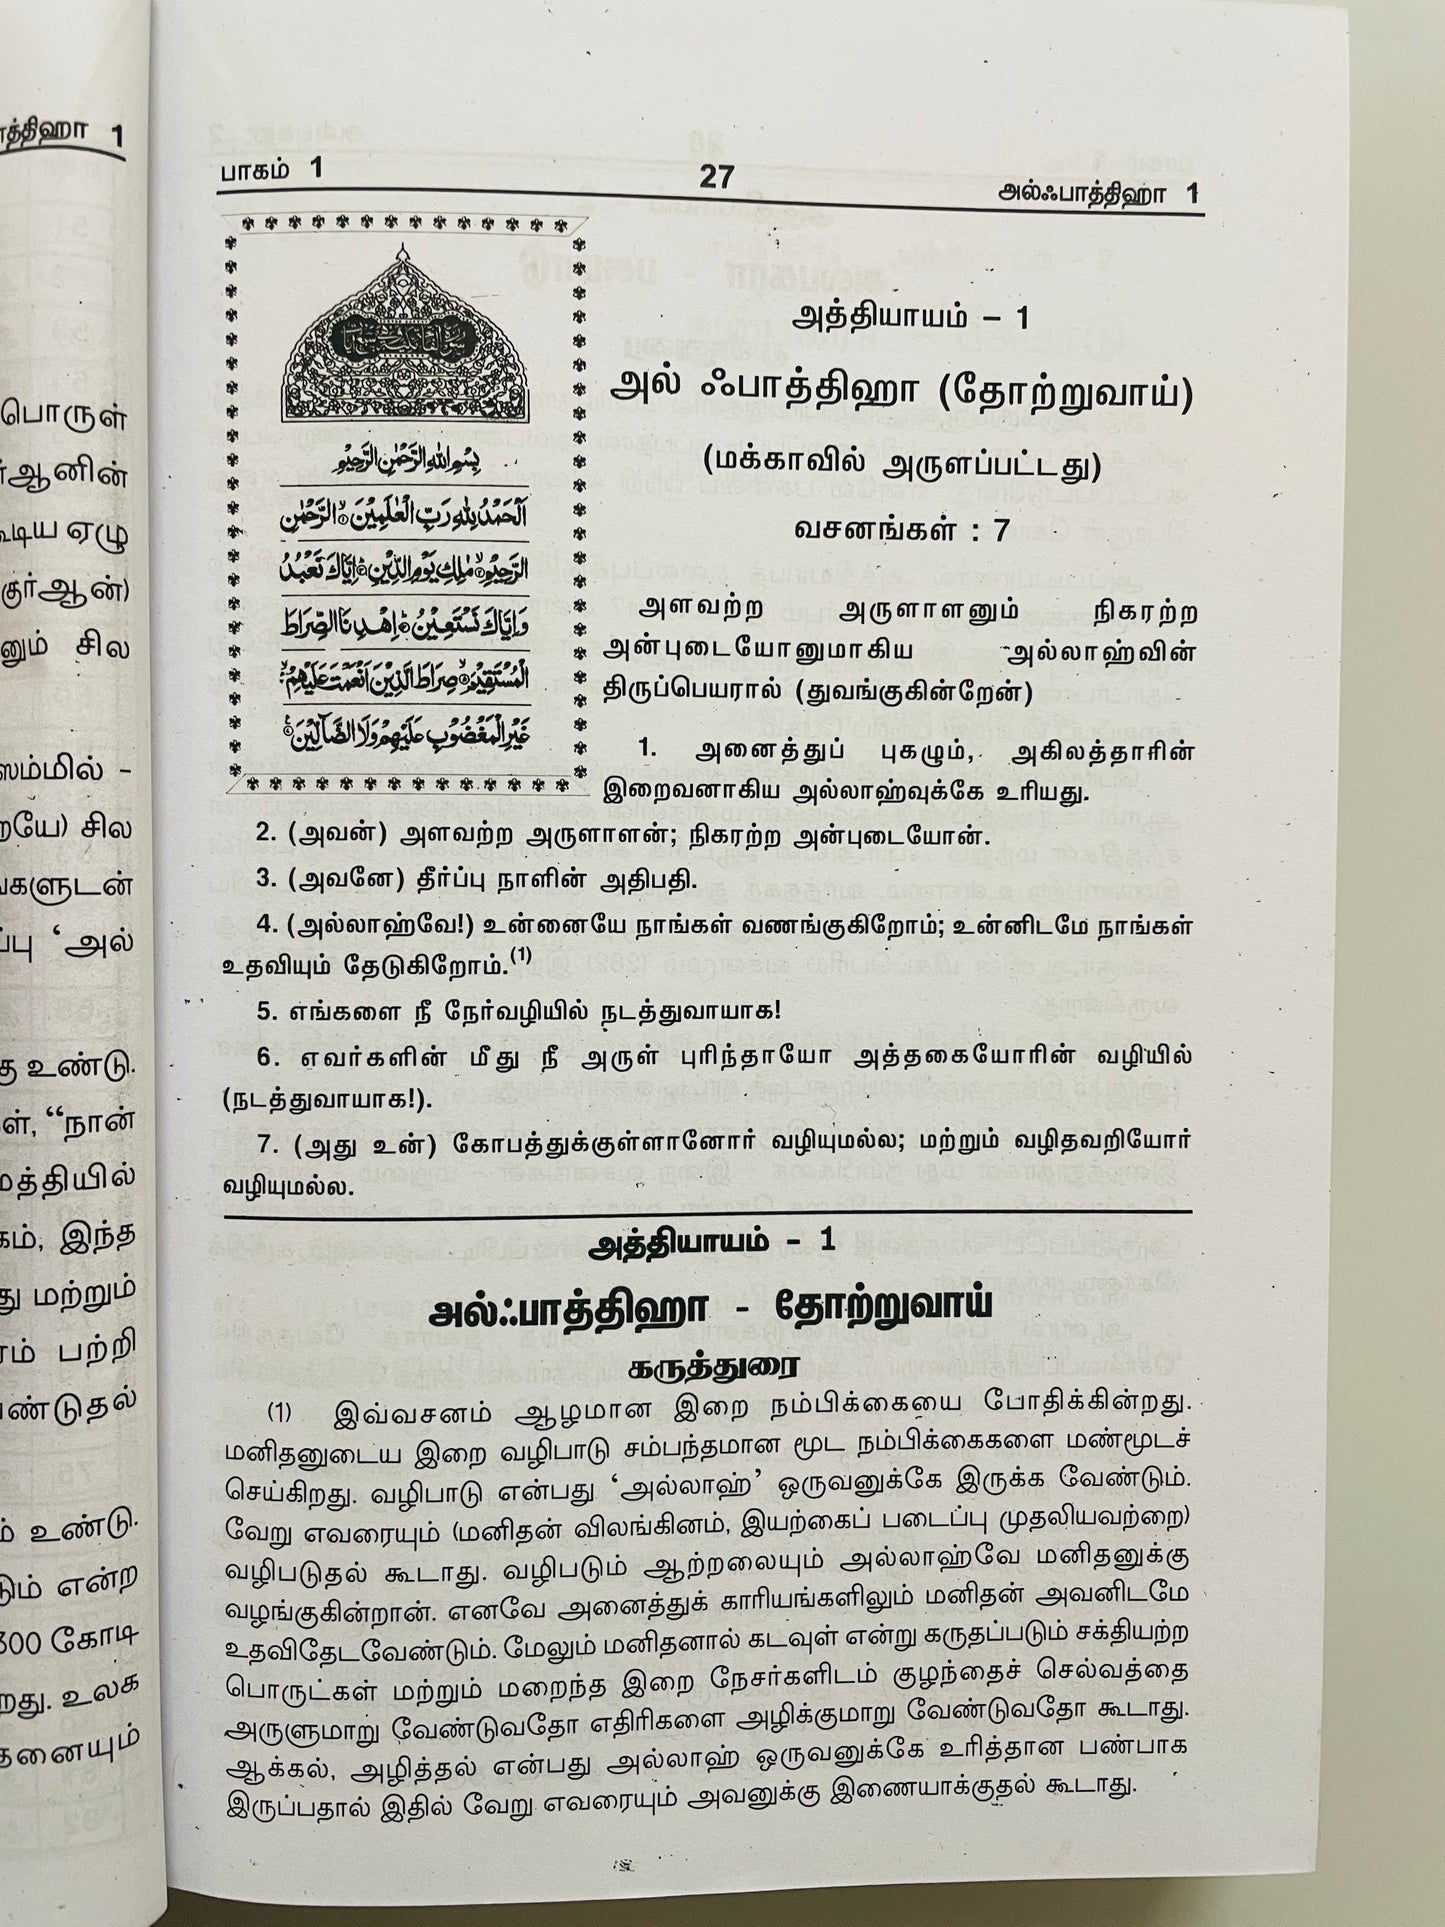 ாத்திஹா 1
பொருள்
ர்ஆனின்
கூடிய ஏழு
குர்ஆன்)
னும் சில
ஸம்மில் -
றையே) சில
ங்களுடன்
ப்பு ‘அல்
உண்டு.
ள், “நான்
மத்தியில்
கம், இந்த
து மற்றும்
ரம் பற்றி
ண்டுதல்
ம் உண்டு.
டும் என்ற
300 கோடி
றது. உலக
தனையும்
பாகம் 1 27 அல்ஃபாத்திஹா 1
بِسْمِ اللهِ الرَّحْمٰنِ الرَّحِيْمِ
اَلْحَمْدُ لِلّٰهِ رَبِّ الْعٰلَمِيْنَ ۙ الرَّحْمٰنِ
الرَّحِيْمِ ۙ مٰلِكِ يَوْمِ الدِّيْنِ ؕ اِيَّاكَ نَعْبُدُ
وَاِيَّاكَ نَسْتَعِيْنُ ؕ اِهْدِنَا الصِّرَاطَ
الْمُسْتَقِيْمَ ۙ صِرَاطَ الَّذِيْنَ اَنْعَمْتَ عَلَيْهِمْ ۙ
غَيْرِ الْمَغْضُوْبِ عَلَيْهِمْ وَلَا الضَّآلِّيْنَ
அத்தியாயம் – 1
அல் ஃபாத்திஹா (தோற்றுவாய்)
(மக்காவில் அருளப்பட்டது)
வசனங்கள் : 7
அளவற்ற அருளாளனும் நிகரற்ற
அன்புடையோனுமாகிய அல்லாஹ்வின்
திருப்பெயரால் (துவங்குகின்றேன்)
1. அனைத்துப் புகழும், அகிலத்தாரின்
இறைவனாகிய அல்லாஹ்வுக்கே உரியது.
2. (அவன்) அளவற்ற அருளாளன்; நிகரற்ற அன்புடையோன்.
3. (அவனே) தீர்ப்பு நாளின் அதிபதி.
4. (அல்லாஹ்வே!) உன்னையே நாங்கள் வணங்குகிறோம்; உன்னிடமே நாங்கள்
உதவியும் தேடுகிறோம்.(1)
5. எங்களை நீ நேர்வழியில் நடத்துவாயாக!
6. எவர்களின் மீது நீ அருள் புரிந்தாயோ அத்தகையோரின் வழியில்
(நடத்துவாயாக!).
7. (அது உன்) கோபத்துக்குள்ளானோர் வழியுமல்ல; மற்றும் வழிதவறியோர்
வழியுமல்ல.
அத்தியாயம் - 1
அல்ஃபாத்திஹா - தோற்றுவாய்
கருத்துரை
(1) இவ்வசனம் ஆழமான இறை நம்பிக்கையை போதிக்கின்றது.
மனிதனுடைய இறை வழிபாடு சம்பந்தமான மூட நம்பிக்கைகளை மண்மூடச்
செய்கிறது. வழிபாடு என்பது ‘அல்லாஹ்’ ஒருவனுக்கே இருக்க வேண்டும்.
வேறு எவரையும் (மனிதன் விலங்கினம், இயற்கைப் படைப்பு முதலியவற்றை)
வழிபடுதல் கூடாது. வழிபடும் ஆற்றலையும் அல்லாஹ்வே மனிதனுக்கு
வழங்குகின்றான். எனவே அனைத்துக் காரியங்களிலும் மனிதன் அவனிடமே
உதவிதேடவேண்டும். மேலும் மனிதனால் கடவுள் என்று கருதப்படும் சக்தியற்ற
பொருட்கள் மற்றும் மறைந்த இறை நேசர்களிடம் குழந்தைச் செல்வத்தை
அருளுமாறு வேண்டுவதோ எதிரிகளை அழிக்குமாறு வேண்டுவதோ கூடாது.
ஆக்கல், அழித்தல் என்பது அல்லாஹ் ஒருவனுக்கே உரித்தான பண்பாக
இருப்பதால் இதில் வேறு எவரையும் அவனுக்கு இணையாக்குதல் கூடாது.